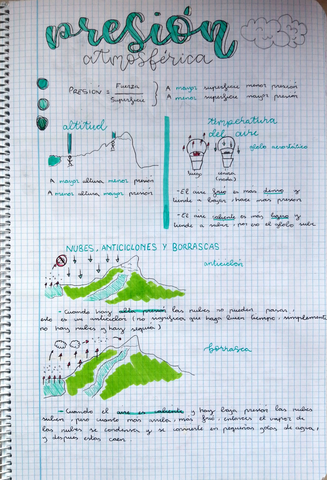 presión
atmosférica
PRESION = Fuerza / Superficie } A mayor superficie menor presión
A menor superficie mayor presión
altitud
temperatura
del aire
globo aerostático
A mayor altura menor presión
A menor altura mayor presión
- El aire frío es más denso y
tiende a bajar, hace más presión
- El aire caliente es más ligero y
tiende a subir, por eso el globo sube
NUBES, ANTICICLONES Y BORRASCAS
anticiclón
- Cuando hay altas presiones las nubes no pueden pasar.
esto es un anticiclón (no significa que haga buen tiempo, simplemente
no hay nubes y hay sequía)
borrasca
- Cuando el aire es caliente y hay baja presión las nubes
suben, pero cuanto más suela, más frío, entonces el vapor de
las nubes se condensa y se convierte en pequeñas gotas de agua,
y después estas caen.